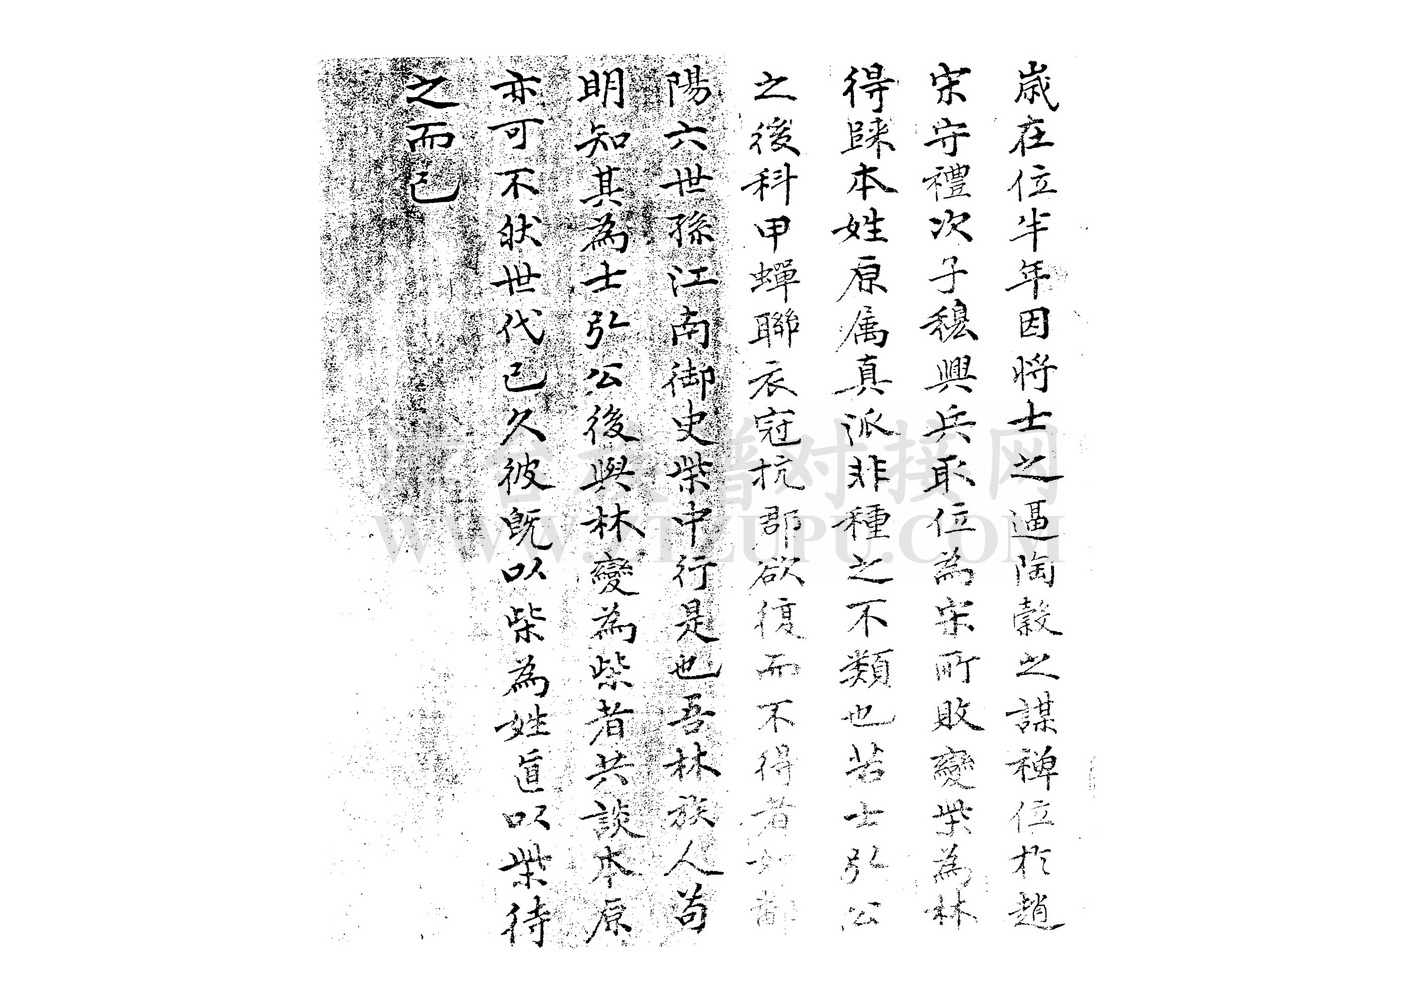 歲在位半年因將士之逼陶穀之謀禅位於趙
宋守禮次子穏興兵取位為宋所敗變柴為林
得歸本姓原属真派非種之不類也若士弘公
之後科甲蟬聯衣冠抗郡欲復而不得者如鄱
陽六世孫江南御史柴中行是也吾林族人苟
明知其為士弘公後與林變為柴者共談本原
亦可不狀世代已久彼既以柴為姓直以柴待
之而已
浮台族谱对接网
WWW.FTZUPU.COM